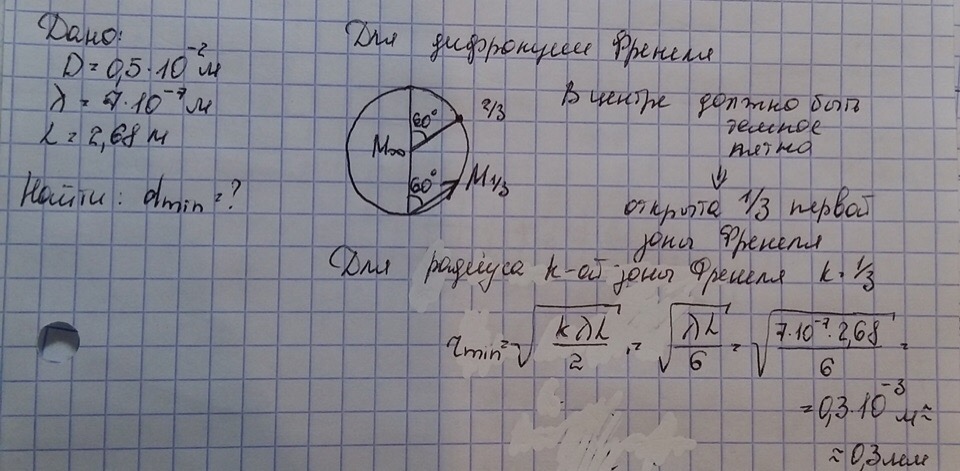 Дано:
D = 0,5·10⁻² м
λ = 7·10⁻⁷ м
L = 2,68 м
Найти: dmin = ?
Для дифракции Френеля
60°
2/3
M∞
60°
M1/3
В центре должно быть
темное
пятно
⇓
открыта 1/3 первой
зоны Френеля
Для радиуса k-ой зоны Френеля k = 1/3
rmin = √(kλL/2) = √(λL/6) = √(7·10⁻⁷·2,68/6) =
= 0,3·10⁻³ м ≈
≈ 0,3 мм